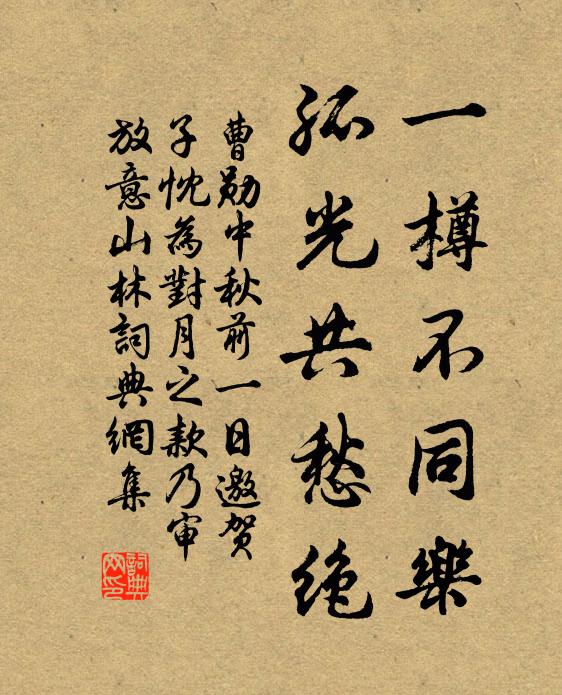 一樽不同樂
孤光共愁絶
曹勛中秋前一日邀賀
子忱為對月之款乃审
放意山林詞典網集
詞典
网印